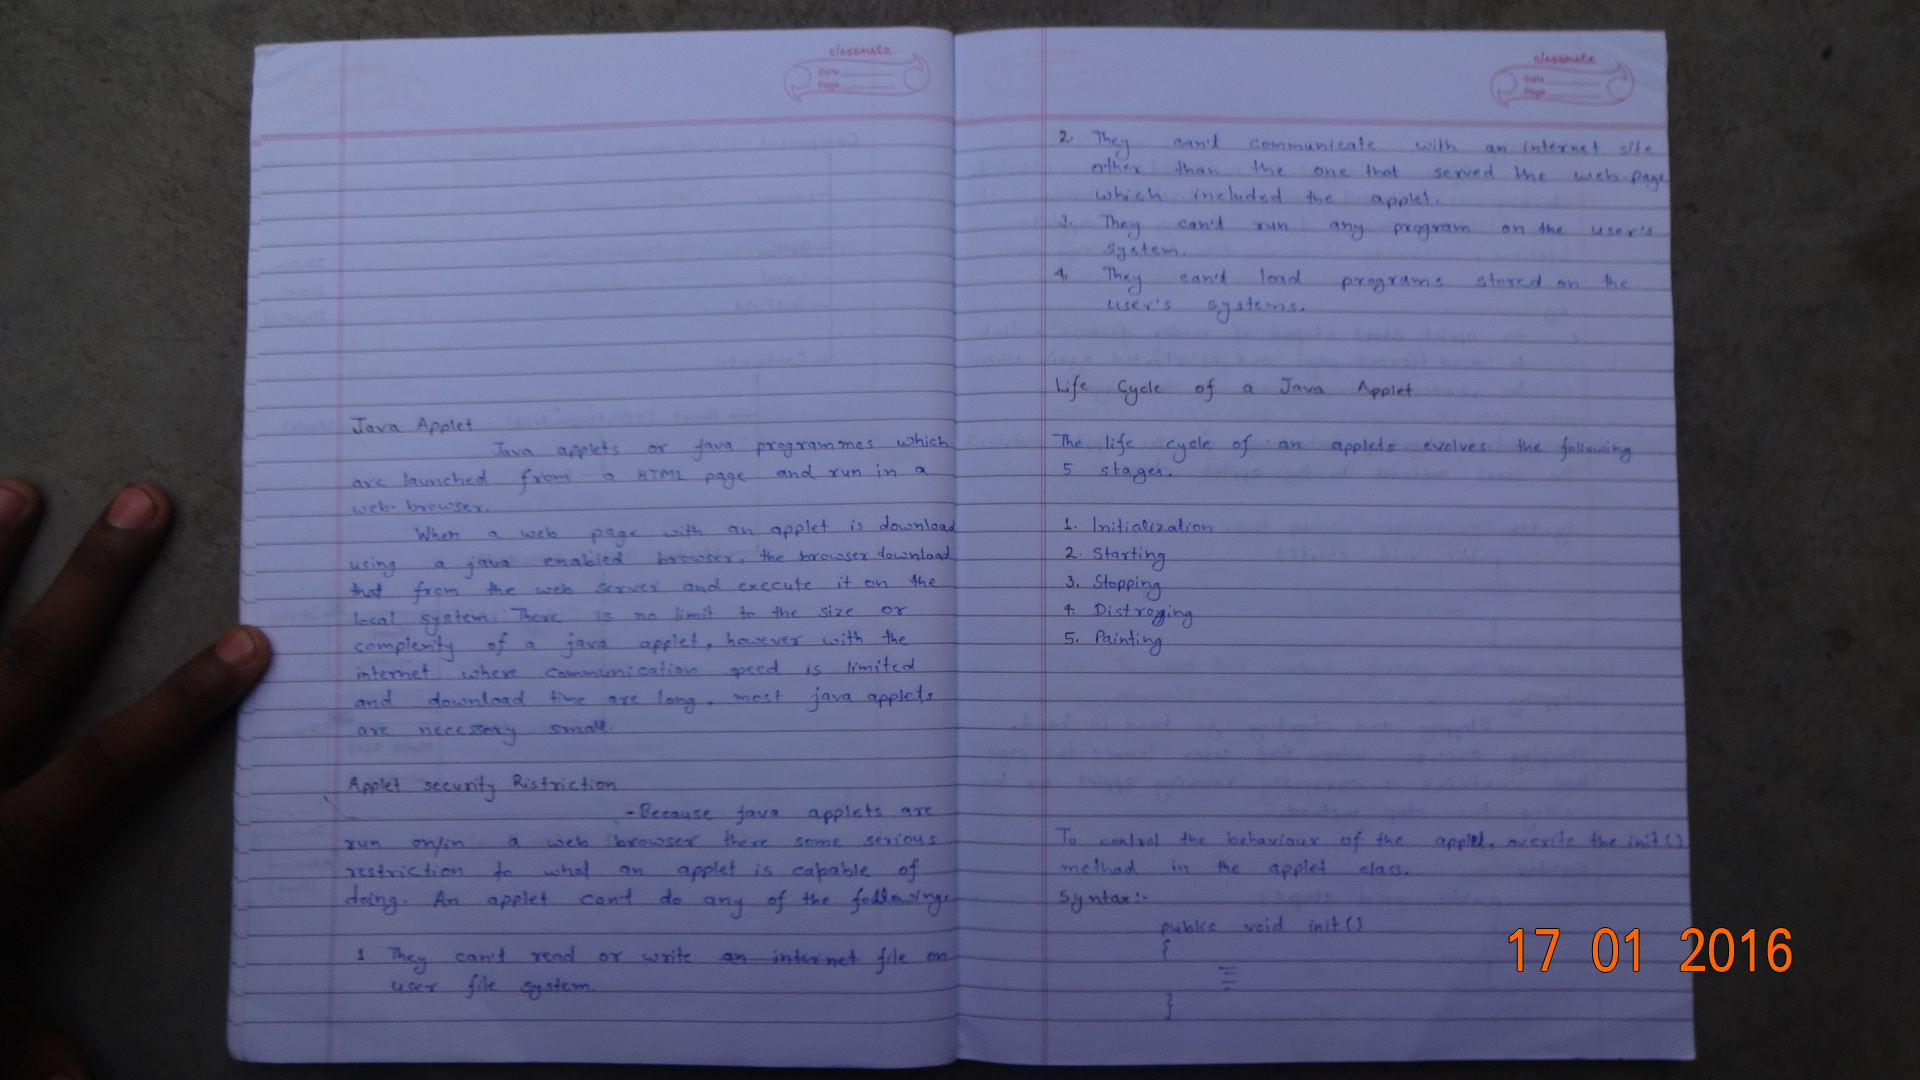 classmate
Date
Page
Java Applet
Java applets or java programmes which
are launched from a HTML page and run in a
web-browser.
When a web page with an applet is download
using a java enabled browser, the browser download
that from the web server and execute it on the
local system. There is no limit to the size or
complenity of a java applet, however with the
internet where communication speed is limited
and download time are long, most java applets
are necessary small.
Applet security Ristriction
- Because java applets are
run on/in a web browser there some serious
restriction to what an applet is capable of
doing. An applet can't do any of the following.
1 They can't read or write an internet file on
user file system.
classmate
Date
Page
2. They can't communicate with an internet site
other than the one that served the web page
which included the applet.
3. They can't run any program on the user's
system.
4. They can't load programs stored on the
user's systems.
Life Cycle of a Java Applet
The life cycle of an applets evolves the following
5 stages.
1. Initialization
2. Starting
3. Stopping
4. Distroying
5. Painting
To control the behaviour of the applet, overite the init()
method in the applet class.
Syntax:-
public void init()
{
}
17 01 2016